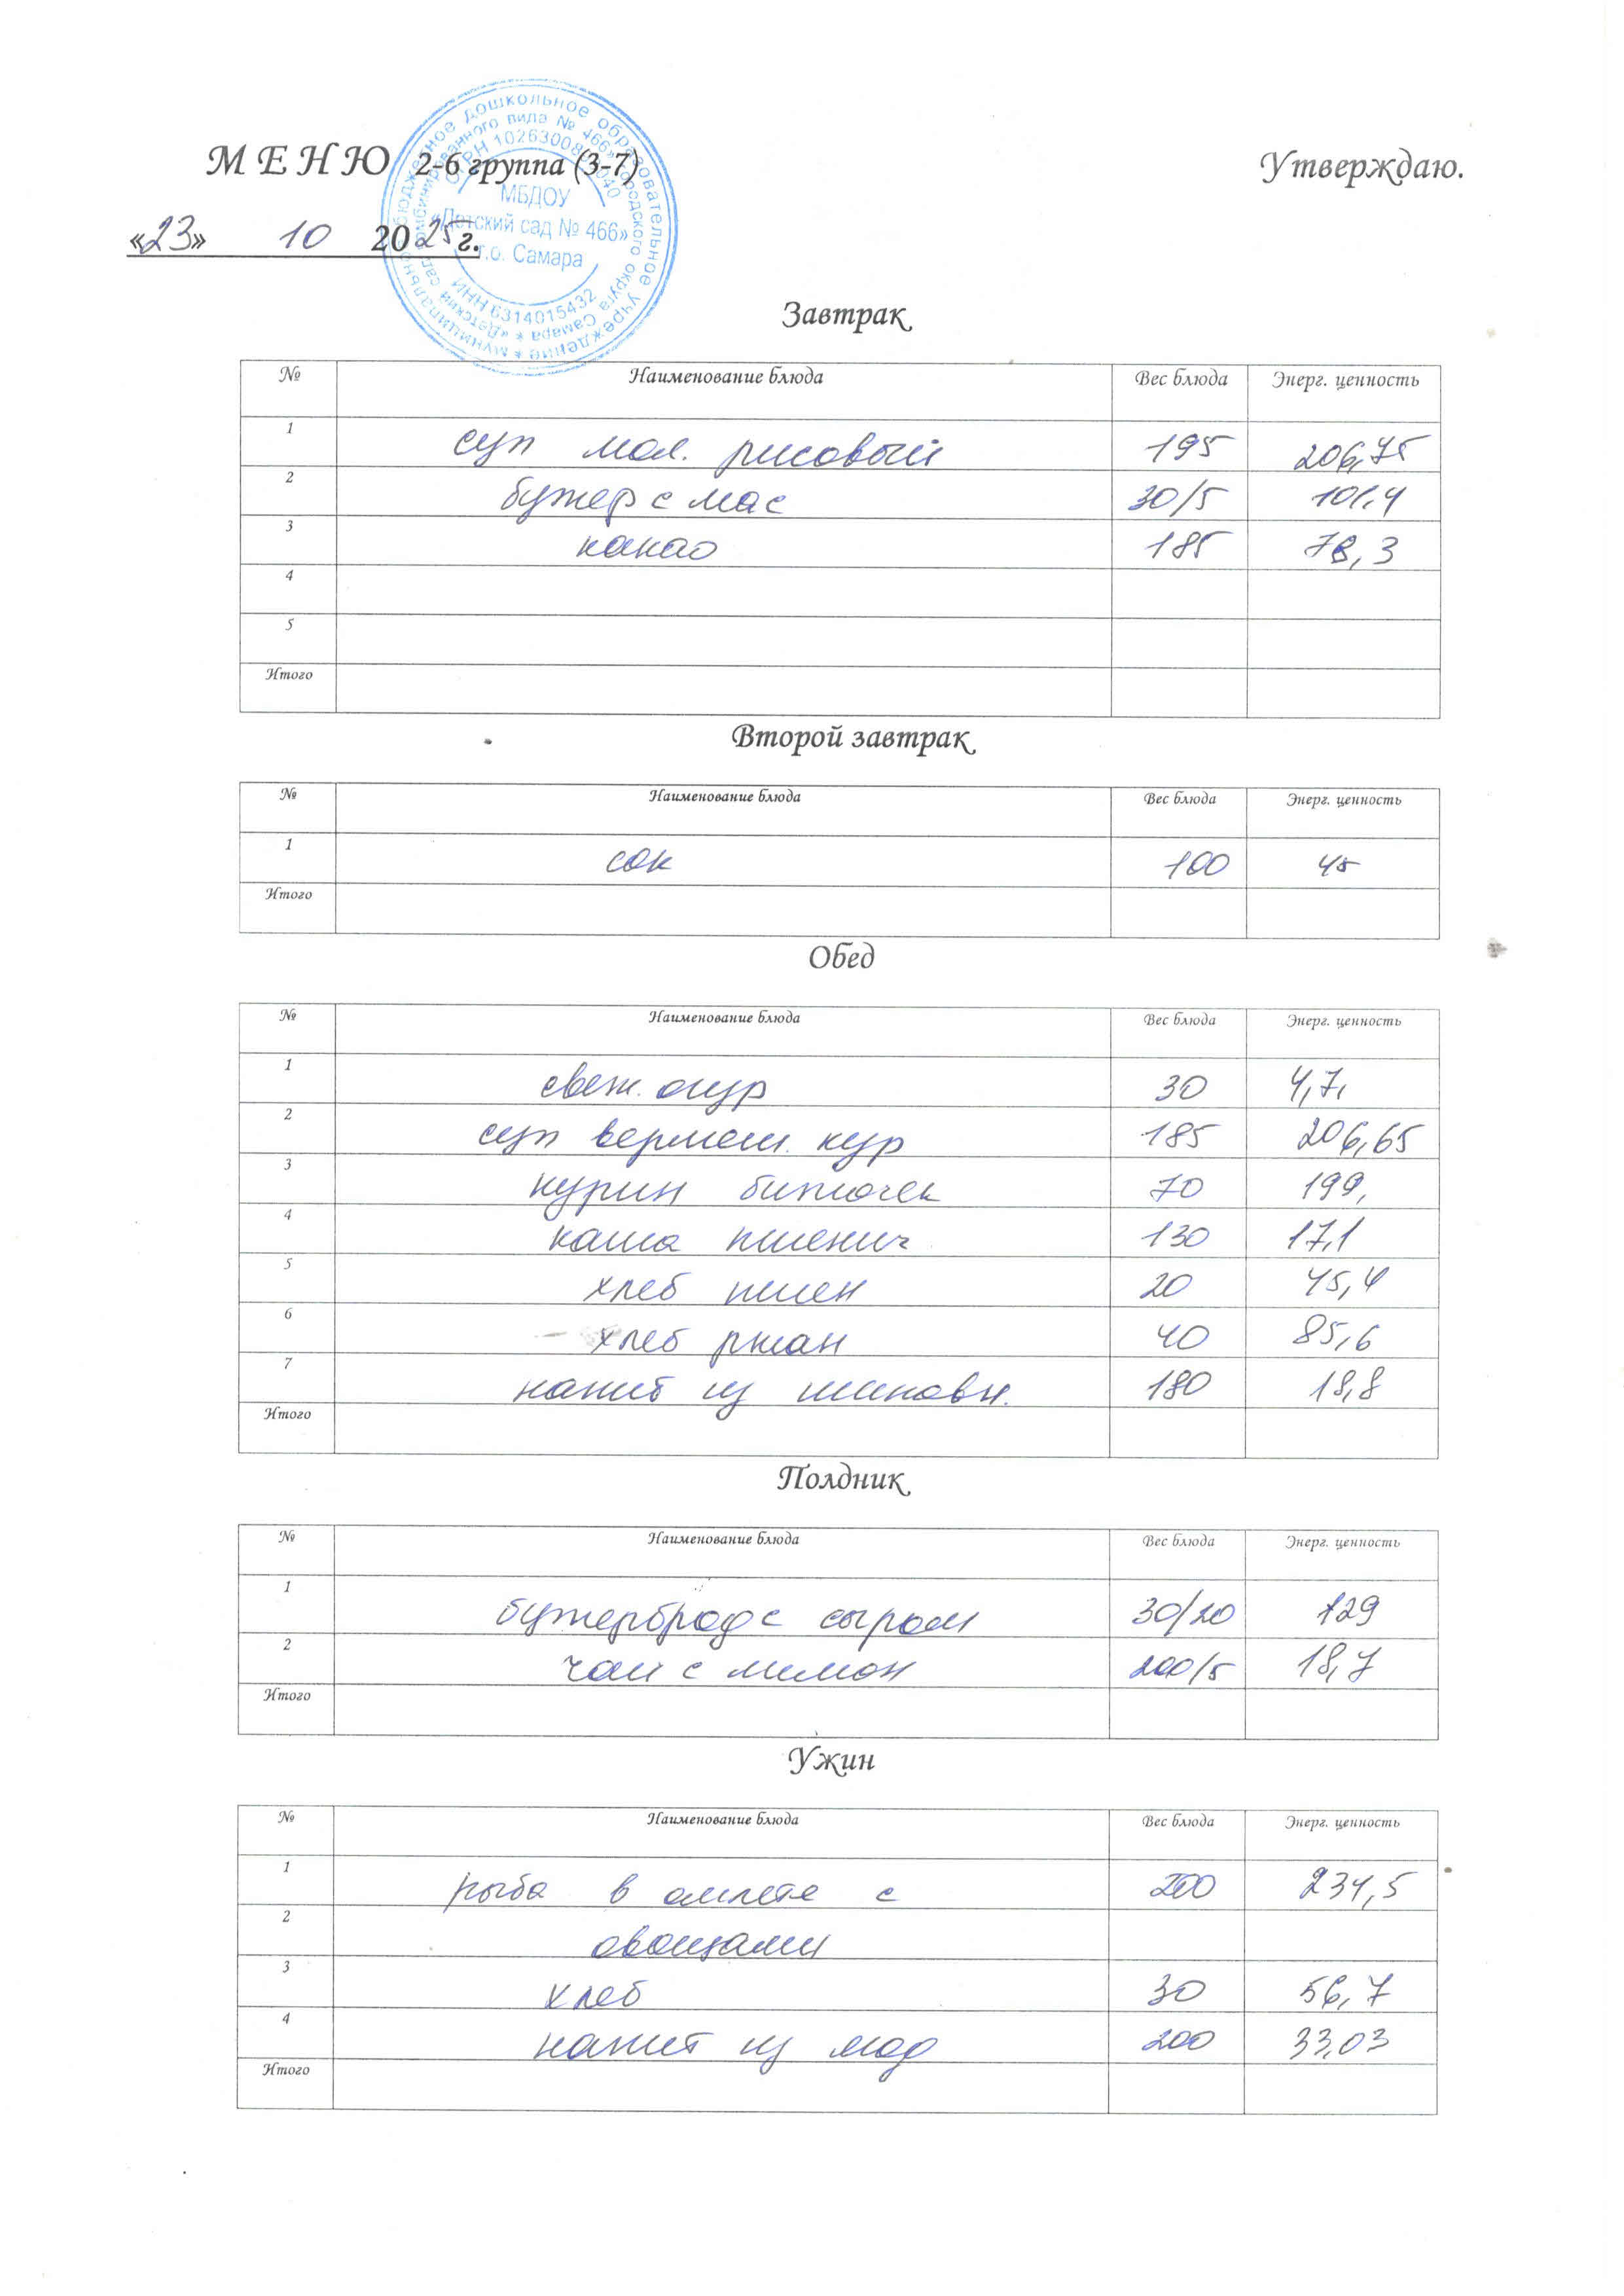 М Е Н Ю 2-6 группа (3-7) Утверждаю.
«23» 10 2025г.
муниципальное бюджетное дошкольное образовательное учреждение
«Детский сад комбинированного вида № 466» городского округа Самара
МБДОУ
«Детский сад № 466»
г.о. Самара
ИНН 6314015432
Завтрак
№ Наименование блюда Вес блюда Энерг. ценность
1 суп мол. рисовый 195 206,75
2 бутер с мас 30/5 101,4
3 какао 185 78,3
4
5
Итого
Второй завтрак
№ Наименование блюда Вес блюда Энерг. ценность
1 сок 100 45
Итого
Обед
№ Наименование блюда Вес блюда Энерг. ценность
1 свеж. огур 30 4,7,
2 суп вермеш. кур 185 206,65
3 курин биточек 70 199,
4 каша пшенич 130 17,1
5 хлеб пшен 20 45,4
6 хлеб ржан 40 85,6
7 напит из шиповн. 180 18,8
Итого
Полдник
№ Наименование блюда Вес блюда Энерг. ценность
1 бутерброд с сыром 30/20 129
2 чай с лимон 200/5 18,7
Итого
Ужин
№ Наименование блюда Вес блюда Энерг. ценность
1 рыба в омлете с 200 234,5
2 овощами
3 хлеб 30 56,7
4 напит из ягод 200 33,03
Итого